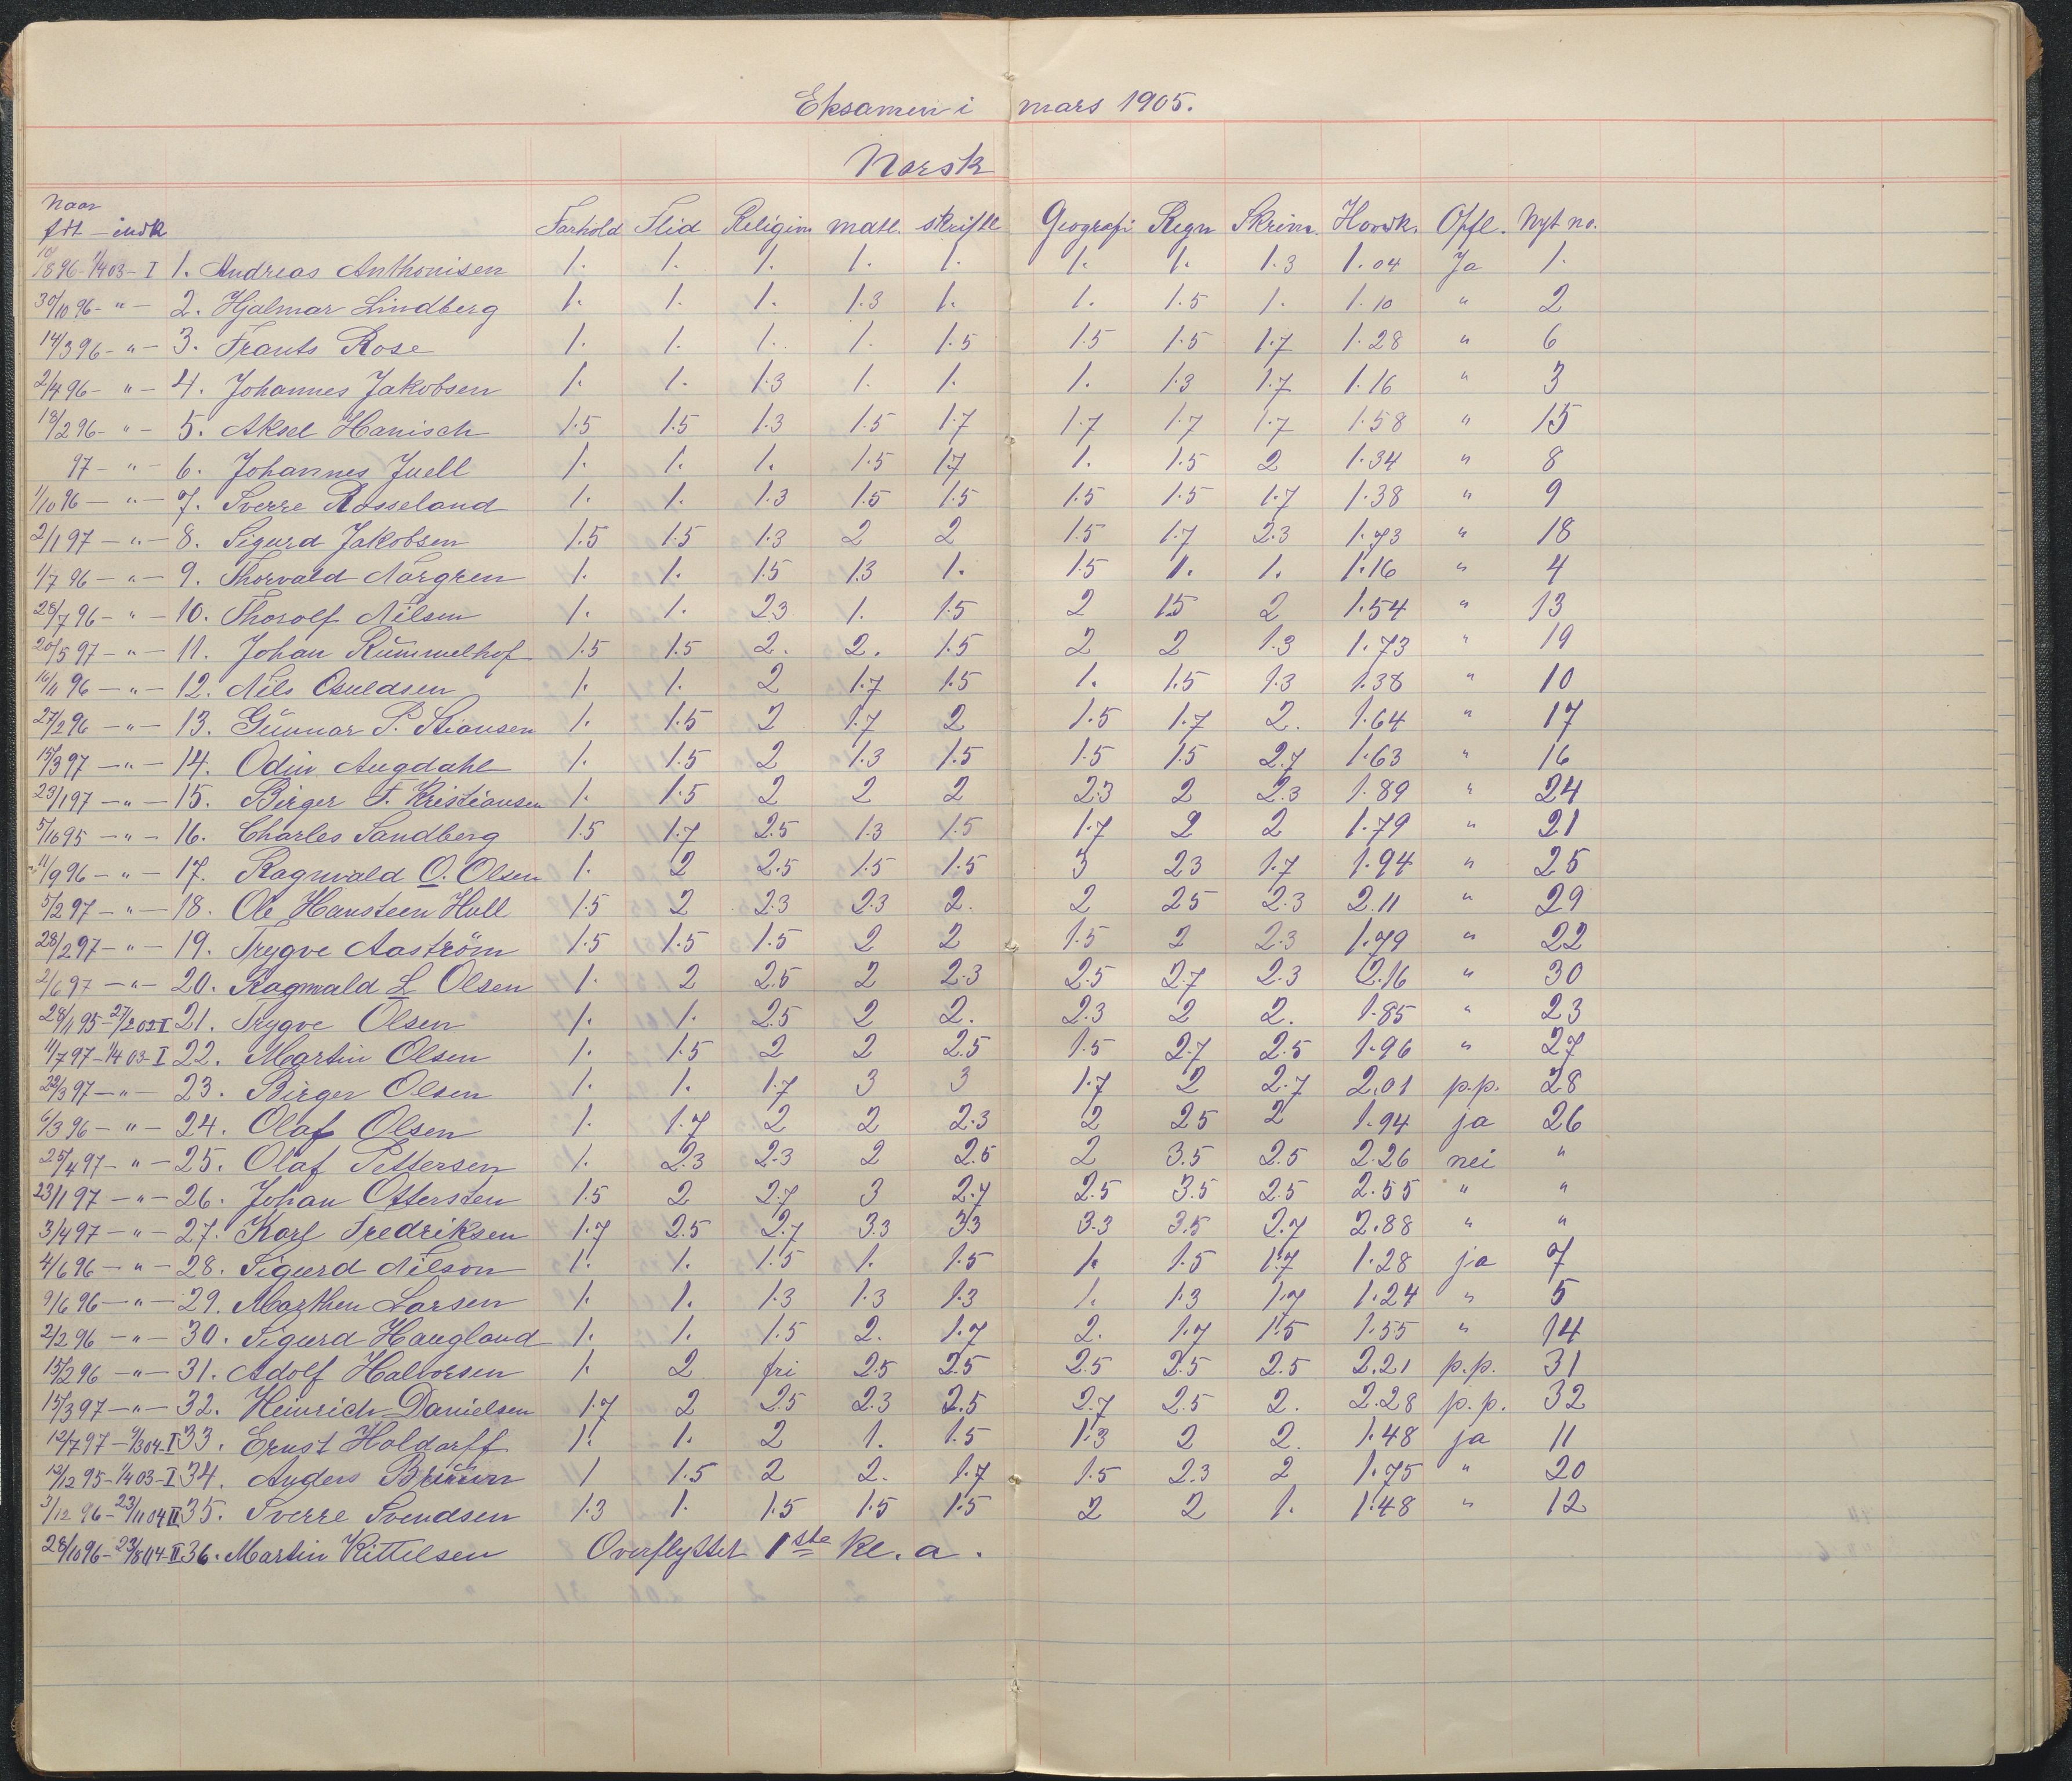 Eksamen i mars 1905.
Norsk
Naar
født - indk Forhold Flid Religion mdtl. skriftl Geografi Regn Skrivn. Hovedk. Opfl. Nyt no.
10/8 96 - 1/4 03 - I 1. Andreas Anthonisen 1. 1. 1. 1. 1. 1. 1. 1.3 1.04 Ja 1.
30/10 96 - " - 2. Hjalmar Lindberg 1. 1. 1. 1.3 1. 1. 1.5 1. 1.10 " 2
14/3 96 - " - 3. Frants Rose 1. 1. 1. 1. 1.5 1.5 1.5 1.7 1.28 " 6
2/4 96 - " - 4. Johannes Jakobsen 1. 1. 1.3 1. 1. 1. 1.3 1.7 1.16 " 3
18/2 96 - " - 5. Aksel Hanisch 1.5 1.5 1.3 1.5 1.7 1.7 1.7 1.7 1.58 " 15
97 - " - 6. Johannes Juell 1. 1. 1. 1.5 1.7 1. 1.5 2 1.34 " 8
1/10 96 - " - 7. Sverre Rosseland 1. 1. 1.3 1.5 1.5 1.5 1.5 1.7 1.38 " 9
2/1 97 - " - 8. Sigurd Jakobsen 1.5 1.5 1.3 2 2 1.5 1.7 2.3 1.73 " 18
1/7 96 - " - 9. Thorvald Nørgren 1. 1. 1.5 1.3 1. 1.5 1. 1. 1.16 " 4
28/7 96 - " - 10. Thorolf Nilsen 1. 1. 2.3 1. 1.5 2 1.5 2 1.54 " 13
20/5 97 - " - 11. Johan Rummelhof 1.5 1.5 2. 2. 1.5 2 2 1.3 1.73 " 19
16/11 96 - " - 12. Nils Osuldsen 1. 1. 2 1.7 1.5 1. 1.5 1.3 1.38 " 10
27/2 96 - " - 13. Gunnar P. Stiansen 1. 1.5 2 1.7 2 1.5 1.7 2. 1.64 " 17
15/3 97 - " - 14. Odin Augdahl 1. 1.5 2 1.3 1.5 1.5 1.5 2.7 1.63 " 16
23/1 97 - " - 15. Birger F. Kristiansen 1. 1.5 2 2 2 2.3 2 2.3 1.89 " 24
5/10 95 - " - 16. Charles Sandberg 1.5 1.7 2.5 1.3 1.5 1.7 2 2 1.79 " 21
11/9 96 - " - 17. Ragnvald O. Olsen 1. 2 2.5 1.5 1.5 3 2.3 1.7 1.94 " 25
5/2 97 - " - 18. Ole Hansteen Hull 1.5 2 2.3 2.3 2. 2 2.5 2.3 2.11 " 29
28/2 97 - " - 19. Trygve Aaström 1.5 1.5 1.5 2 2 1.5 2 2.3 1.79 " 22
2/6 97 - " - 20. Ragnvald L Olsen 1. 2 2.5 2 2.3 2.5 2.7 2.3 2.16 " 30
28/11 95 - 27/2 02 I 21. Trygve Olsen 1. 1. 2.5 2 2. 2.3 2 2. 1.85 " 23
11/7 97 - 1/4 03 - I 22. Martin Olsen 1. 1.5 2 2 2.5 1.5 2.7 2.5 1.96 " 27
22/3 97 - " - 23. Birger Olsen 1. 1. 1.7 3 3 1.7 2 2.7 2.01 p.p. 28
6/3 96 - " - 24. Olaf Olsen 1. 1.7 2 2 2.3 2 2.5 2 1.94 ja 26
25/4 97 - " - 25. Olaf Pettersen 1. 2.3 2.3 2 2.5 2 3.5 2.5 2.26 nei "
23/1 97 - " - 26. Johan Ottersten 1.5 2 2.7 3 2.7 2.5 3.5 2.5 2.55 " "
3/4 97 - " - 27. Karl Fredriksen 1.7 2.5 2.7 3.3 3.3 3.3 3.5 2.7 2.88 " "
4/6 96 - " - 28. Sigurd Nilson 1. 1. 1.5 1. 1.5 1. 1.5 1.7 1.28 ja 7
9/6 96 - " - 29. Marthen Larsen 1. 1. 1.3 1.3 1.3 1. 1.3 1.7 1.24 " 5
2/2 96 - " - 30. Sigurd Haugland 1. 1. 1.5 2. 1.7 2. 1.7 1.5 1.55 " 14
15/2 96 - " - 31. Adolf Halvorsen 1. 2 fri 2.5 2.5 2.5 2.5 2.5 2.21 p.p. 31
15/3 97 - " - 32. Heinrich Danielsen 1.7 2 2.5 2.3 2.5 2.7 2.5 2. 2.28 p.p. 32
12/7 97 - 9/3 04 - I 33. Ernst Holdorff 1. 1. 2 1. 1.5 1.3 2 2. 1.48 ja 11
12/12 95 - 1/4 03 - I 34. Anders Bruun 1 1.5 2 2. 1.7 1.5 2.3 2 1.75 " 20
3/12 96 - 23/11 04 II 35. Sverre Svendsen 1.3 1. 1.5 1.5 1.5 2 2 1. 1.48 " 12
28/10 96 - 23/8 04 - II 36. Martin Kittilsen Overflyttet 1ste kl. a.